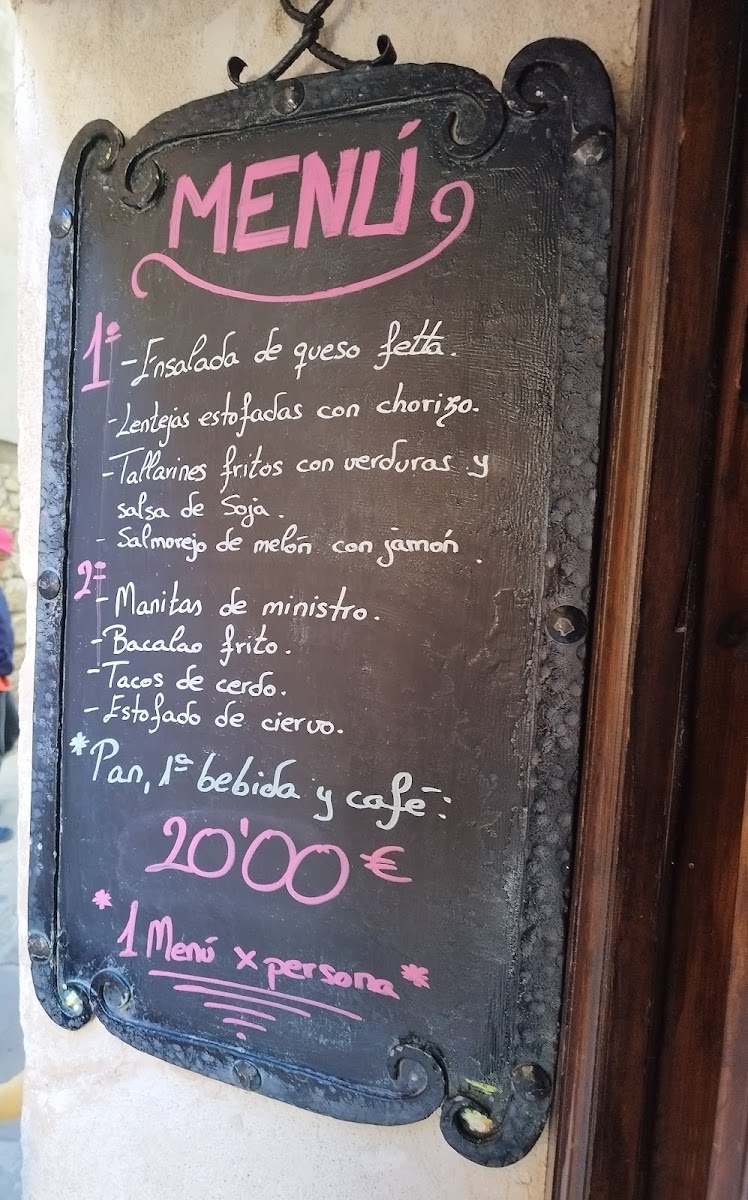 MENÚ
1º -Ensalada de queso fetta.
-Lentejas estofadas con chorizo.
-Tallarines fritos con verduras y
salsa de Soja.
- Salmorejo de melón con jamón.
2º
-Manitas de ministro.
-Bacalao frito.
-Tacos de cerdo.
-Estofado de ciervo.
*Pan, 1ª bebida y café:
20'00 €
* 1 Menú x persona *